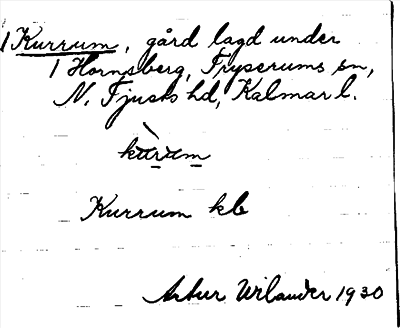 1 Kurrum, gård lagd under
1 Hornsberg, Fryserums sn,
N. Tjusts hd, Kalmar l.
kurum
Kurrum kb
Artur Wilander 1930